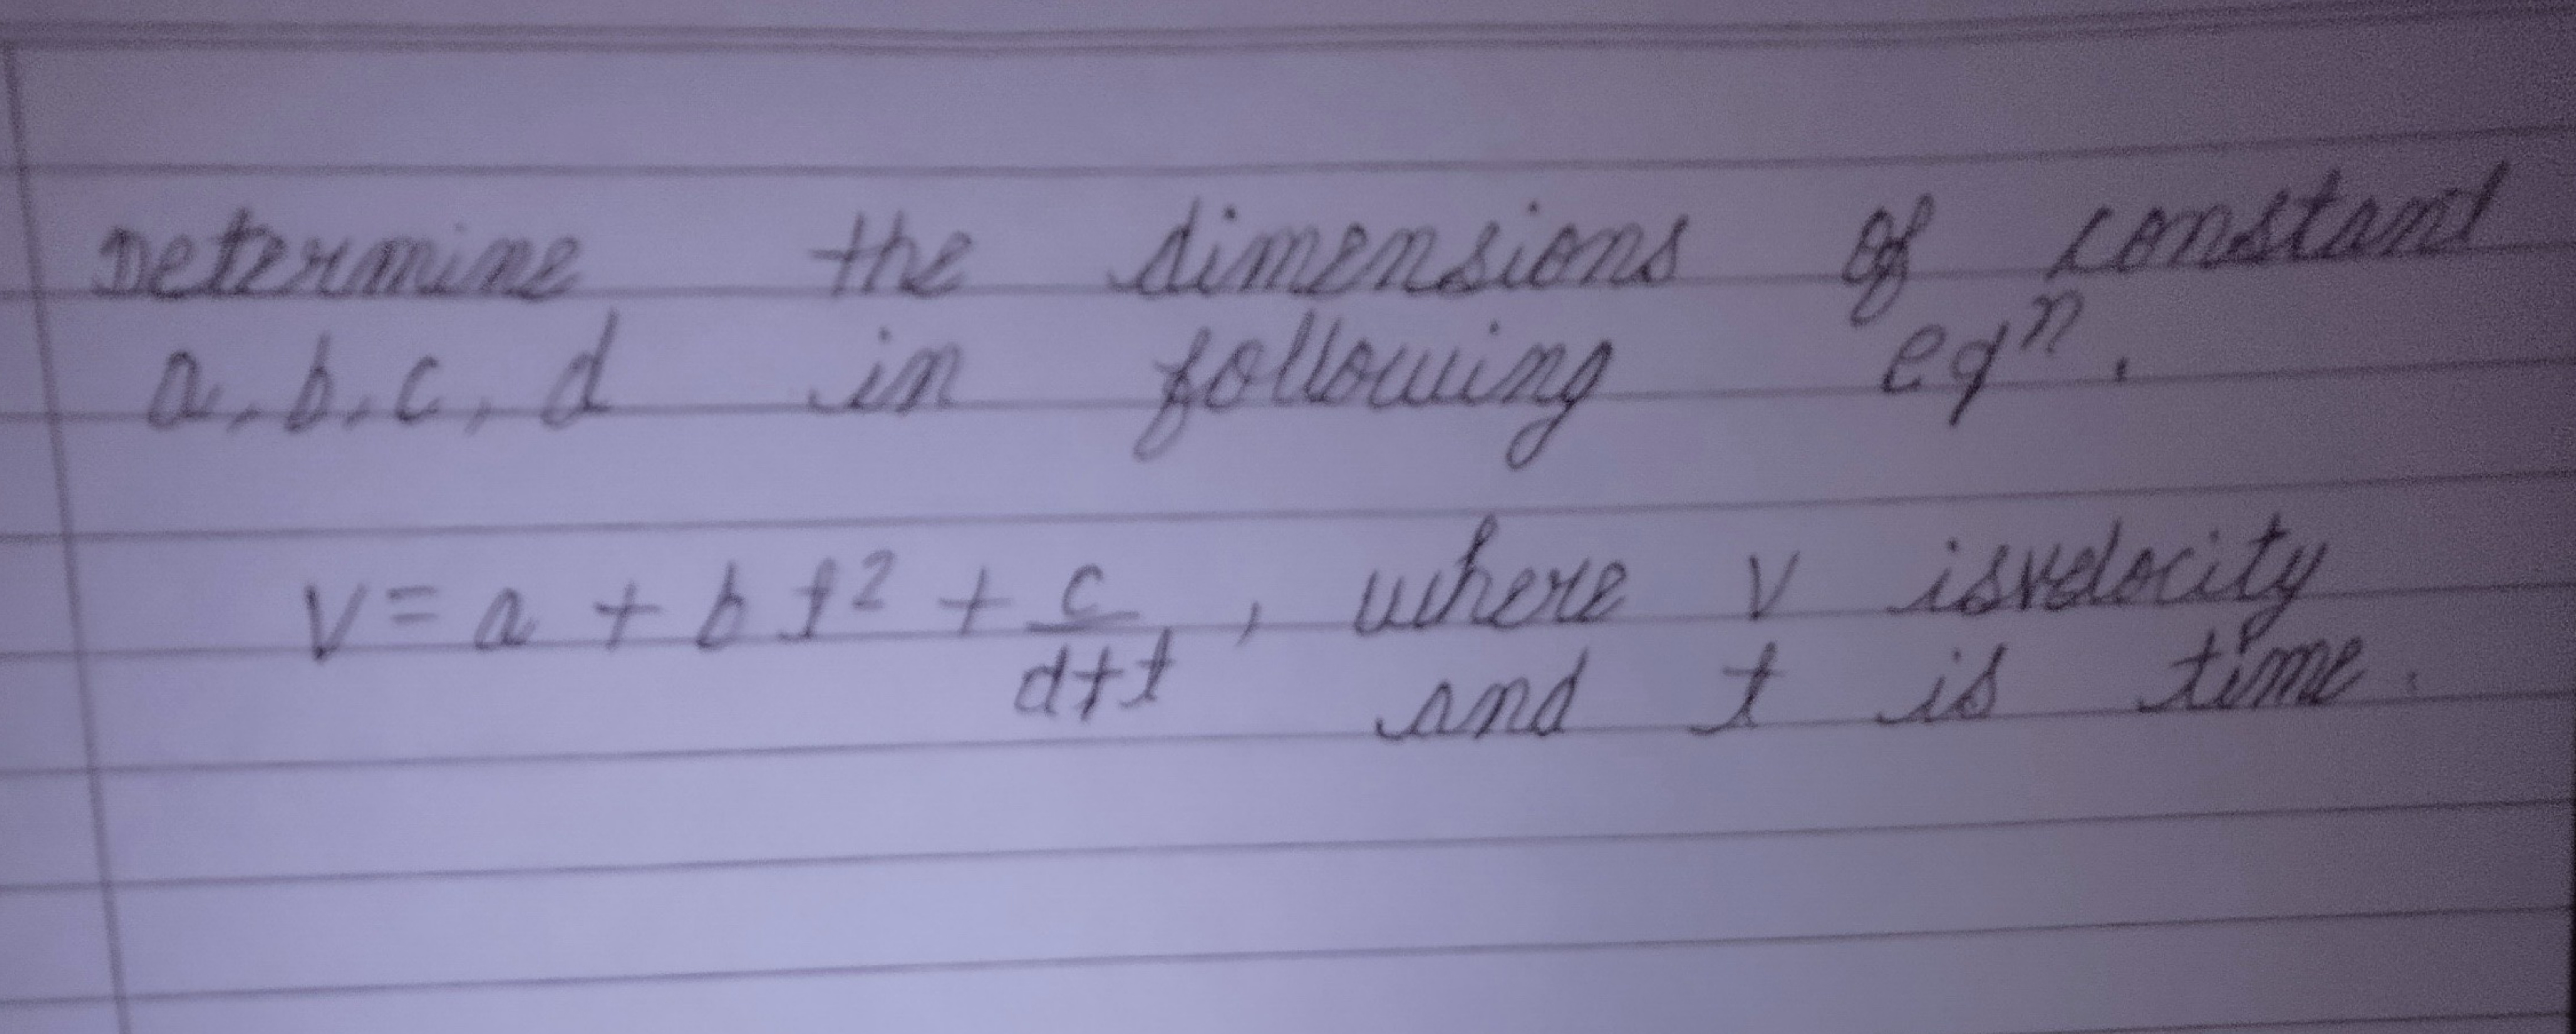 Determine the dimensions of constant
a, b, c, d in following eqⁿ.
v = a + b t² + c/d+t , where v is velocity
and t is time.